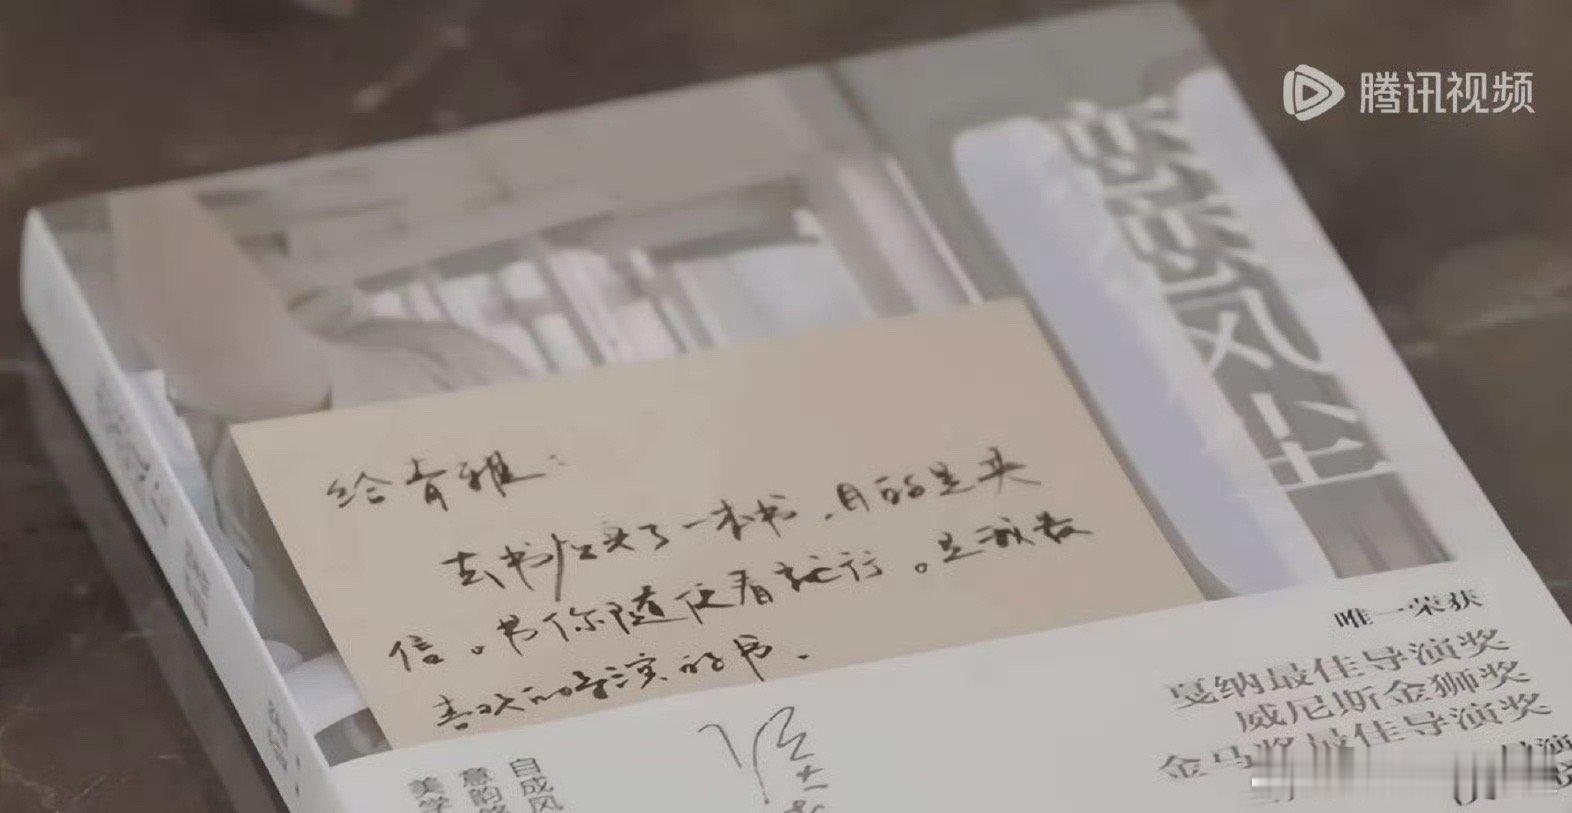 腾讯视频
恋恋风尘
给肯雅：
去书店买了一本书，目的是夹
信。书你随便看就行。是我最
喜欢的导演的书.
唯一荣获
戛纳最佳导演奖
威尼斯金狮奖
金马奖最佳导演奖
自成风
意韵
美学